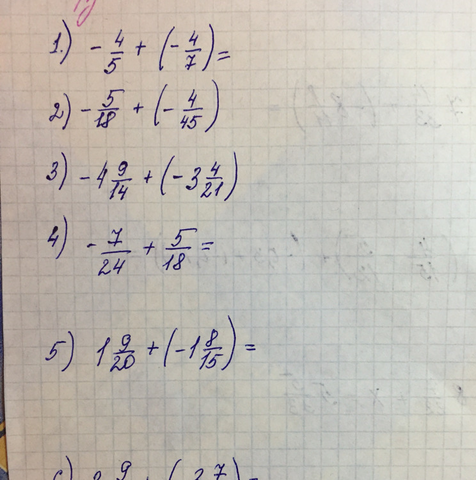 1.) - 4/5 + (- 4/7) =
2) - 5/18 + (- 4/45)
3) - 4 9/14 + (- 3 4/21)
4) - 7/24 + 5/18 =
5) 1 9/20 + (- 1 8/15) =